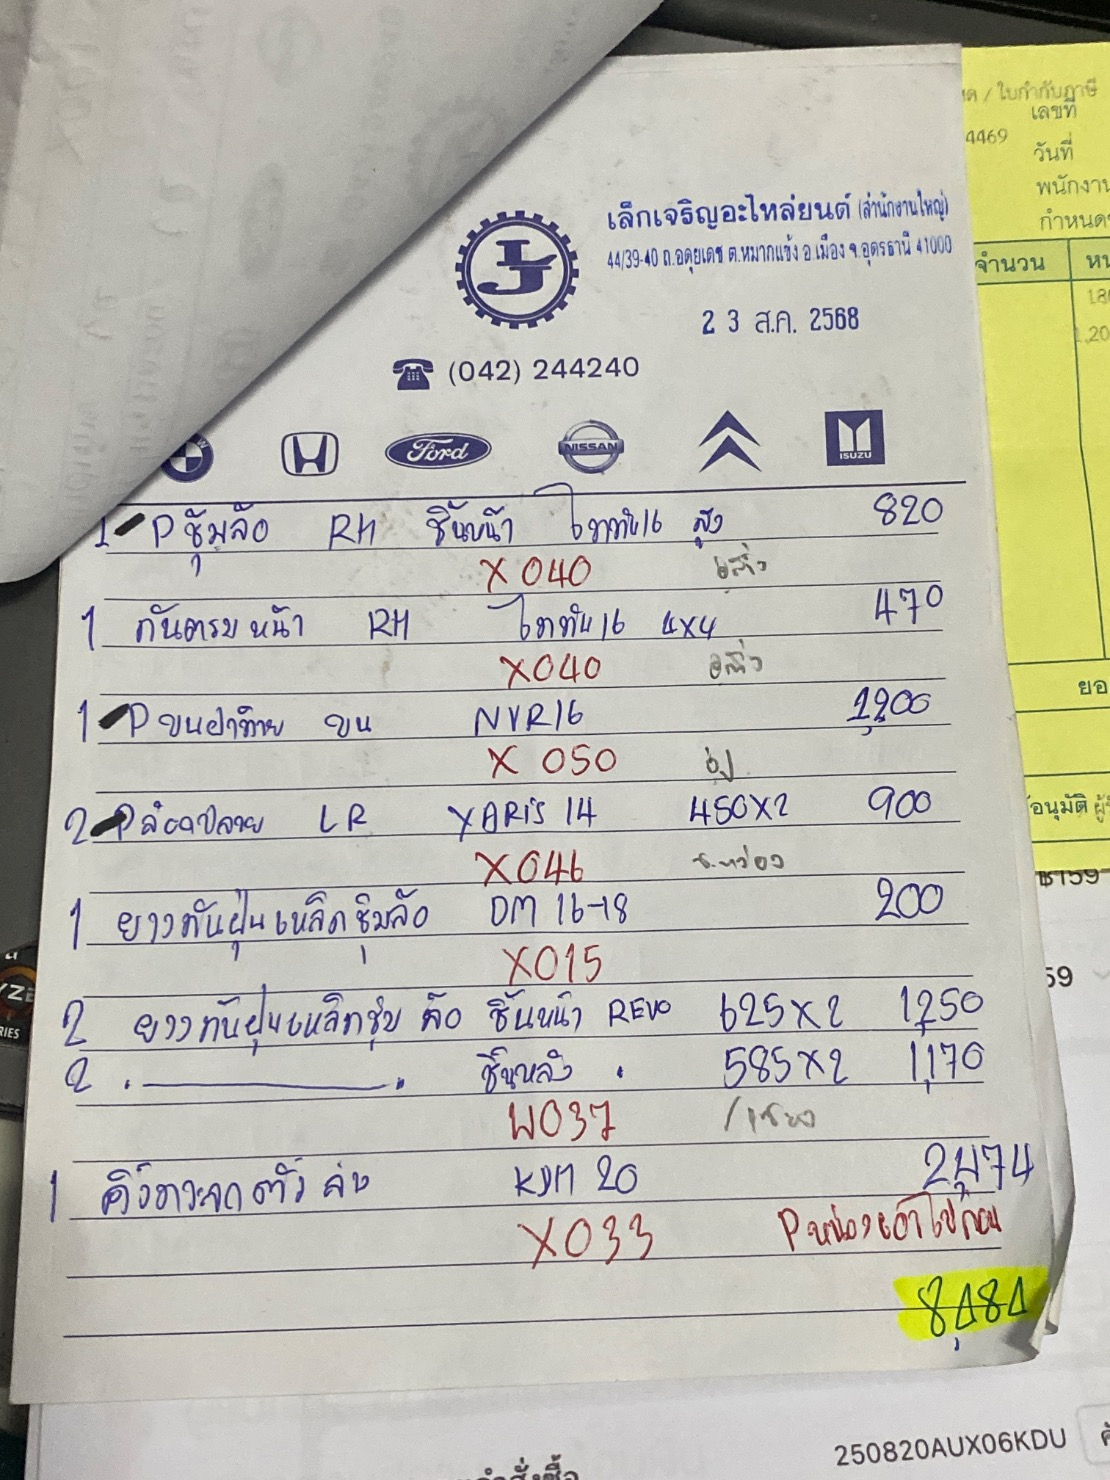 ด / ใบกำกับภาษี
เลขที่
4469
วันที่
พนักงาน
กำหนด
จำนวน
ยอ
อนุมัติ
159
59
เล็กเจริญอะไหล่ยนต์ (สำนักงานใหญ่)
44/39-40 ถ.อดุยเดช ต.หมากแข้ง อ.เมือง จ.อุดรธานี 41000
2 3 ส.ค. 2568
(042) 244240
Ford NISSAN ISUZU
1 P ซุ้มล้อ RH ชิ้นหน้า ไททัน16 สูง 820
X040
1 กันตรบหน้า RH ไททัน16 4x4 470
X040
1 P ขนฝาท้าย บน NVR16 1,200
X 050
2 P LR YARiS 14 450x2 900
X046 ช.หว่อง
1 ยางกันฝุ่นเหล็กซุ้มล้อ DM 16-18 200
X015
2 ยางกันฝุ่นเหล็กซุ้มล้อ ชิ้นหน้า REVO 625x2 1,250
2 . . ชิ้นหลัง . 585x2 1,170
W037
1 คิ้วกระจกตัวล่าง 20 2,474
X033 P หน่องเอาไปก่อน
8,484
250820AUX06KDU
คำสั่งซื้อ